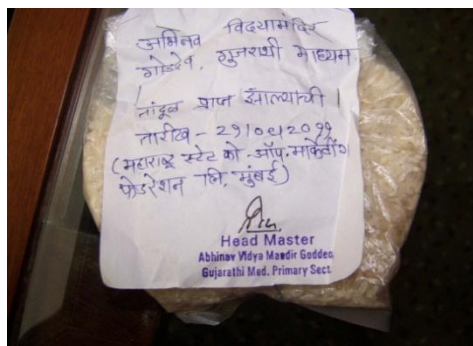 अभिनव विद्यामंदिर
गोडदेव, गुजराथी माध्यम
तांदूळ प्राप्त झाल्याची
तारीख - 29/09/2011
(महाराष्ट्र स्टेट को-ऑप. मार्केटींग
फेडरेशन लि. मुंबई)
Head Master
Abhinav Vidya Mandir Goddeo,
Gujarathi Med. Primary Sect.